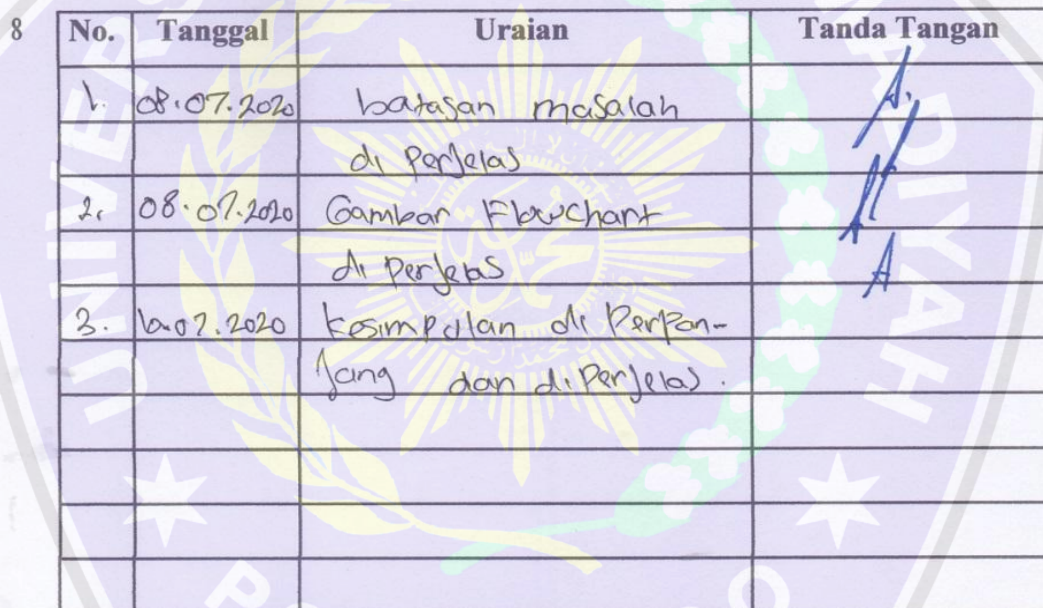 8 No. Tanggal Uraian Tanda Tangan
1. 08.07.2020 batasan masalah
di Perjelas
2. 08.07.2020 Gambar Flowchart
di perjelas
3. 10.07.2020 kesimpulan di Perpan-
jang dan diPerjelas.
UNIVERS
ADIYAH
PO
O